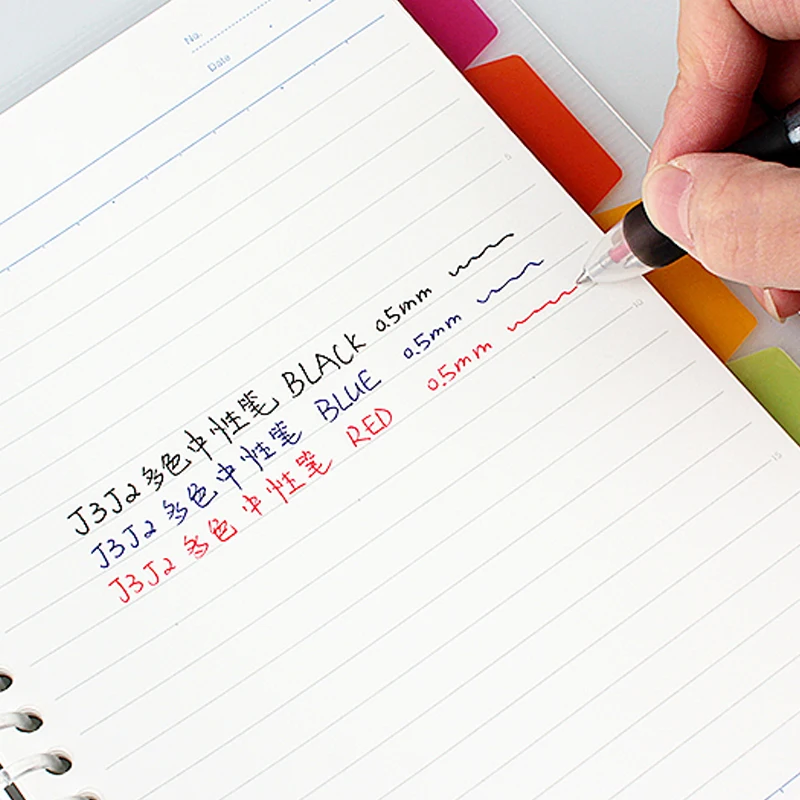 No.
Date
5
J3J2 多色中性笔 BLACK 0.5mm
J3J2 多色中性笔 BLUE 0.5mm
J3J2 多色中性笔 RED 0.5mm
10
15